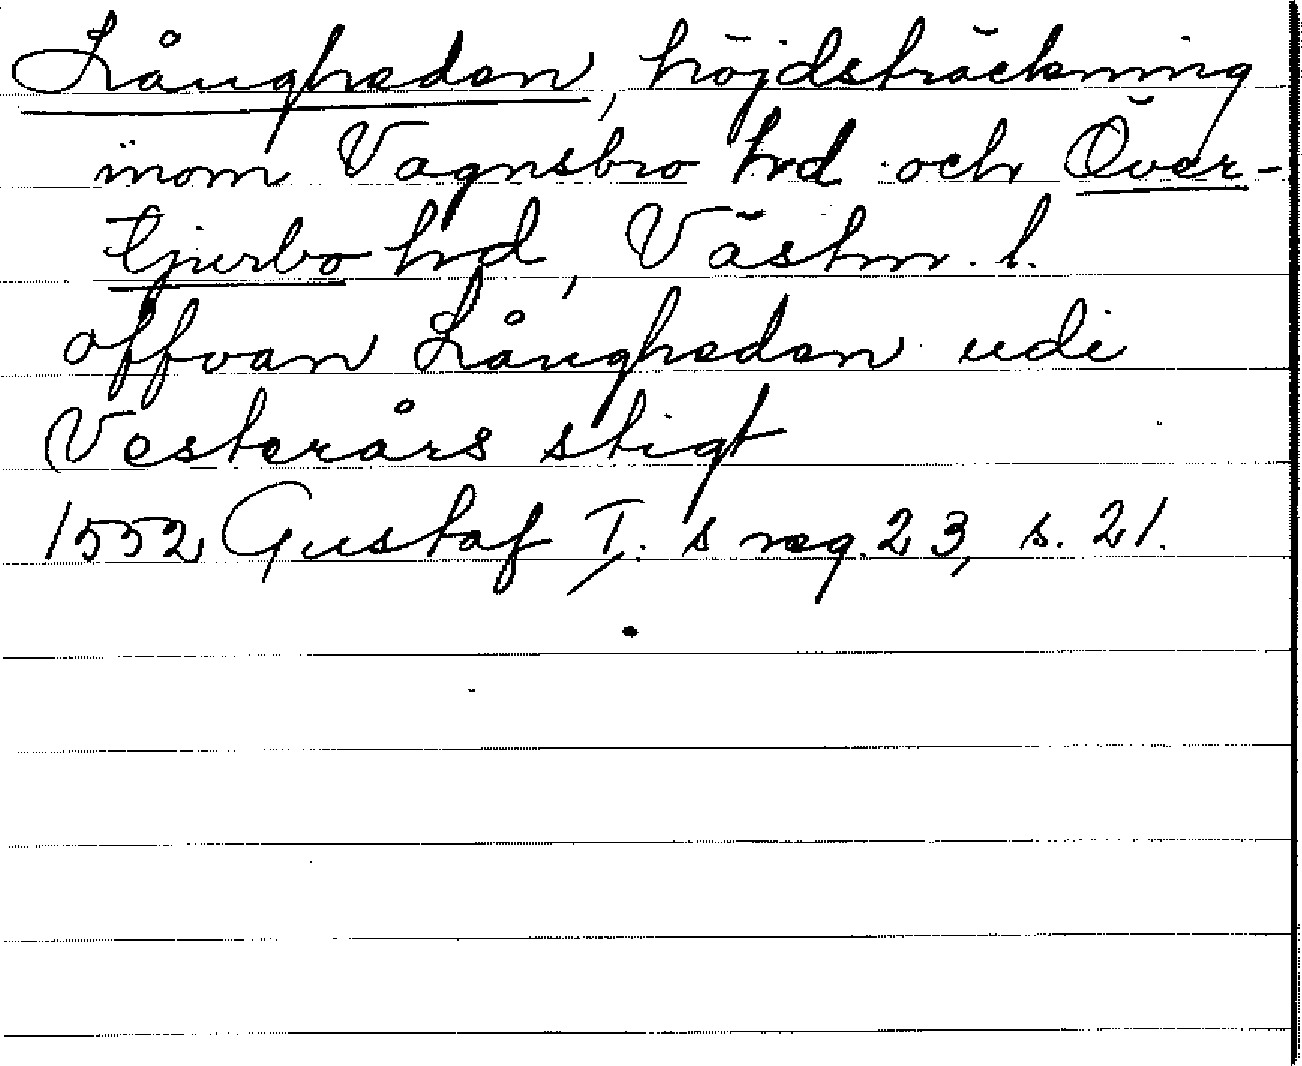 Långheden, höjdsträckning
inom Vagnsbro hrd och Över-
tjurbo hrd, Västm. l.
offvan Långheden udi
Vesterårs stigt
1552 Gustaf I. s reg. 23, s. 21.